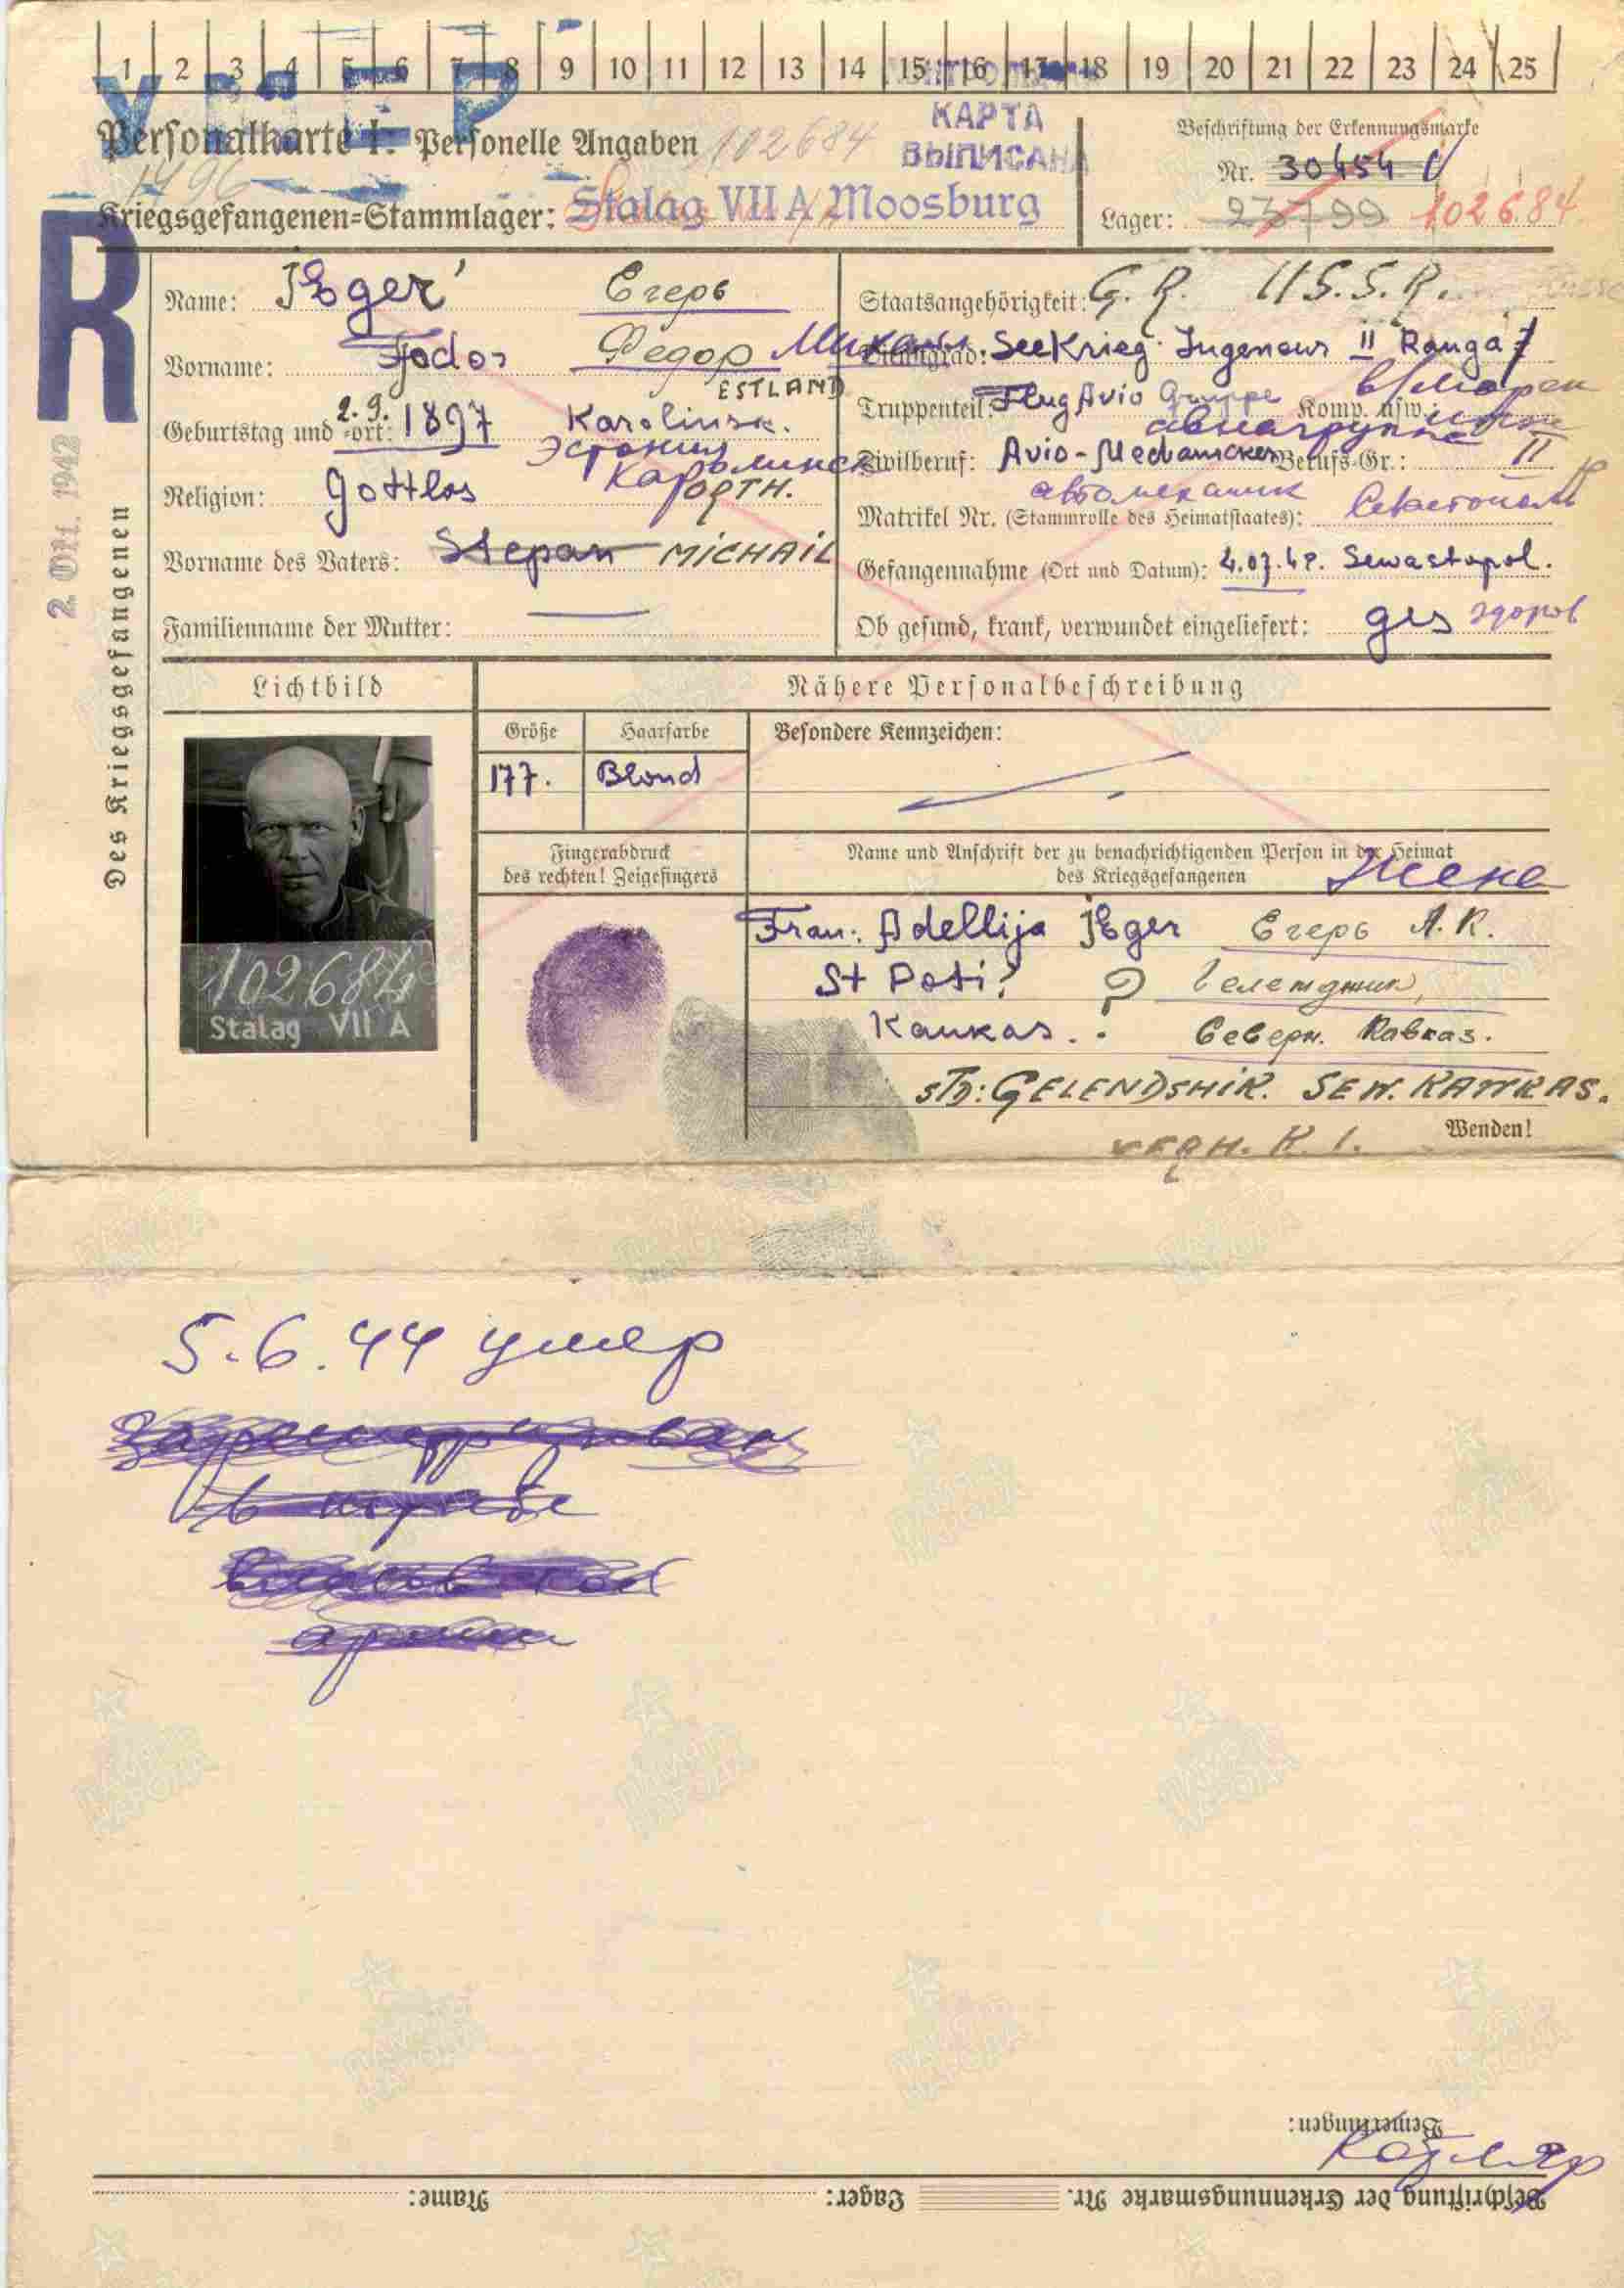 1 2 3 4 5 6 7 8 9 10 11 12 13 14 15 16 17 18 19 20 21 22 23 24 25
УМЕР
КАРТА
ВЫПИСАНА
Personalkarte I: Personelle Angaben 102684
1496
Kriegsgefangenen-Stammlager: Stalag VII A Moosburg
Beschriftung der Erkennungsmarke
Nr. 30454 V
Lager: 23799 102684
R
2. Okt. 1942
Des Kriegsgefangenen
Name: JEger Егерь
Vorname: Fjodor Федор Михайл
Geburtstag und -ort: 2.9. 1897 Karolinsk. ESTLAND
Эстония Каролинск
Religion: Gottlos ORTH.
Vorname des Vaters: Stepan MICHAIL
Familienname der Mutter: —
Staatsangehörigkeit: G. R. U.S.S.R.
Dienstgrad: SeeKrieg Ingeneur II Ranga
Truppenteil: Flug Avio Gruppe Komp. usw.:
авиагруппа
Zivilberuf: Avio-Mechanicker Berufs-Gr.: II
авиамеханик
Matrikel Nr. (Stammrolle des Heimatstaates): Севастополь
Gefangennahme (Ort und Datum): 4.07.42. Sewastopol.
Ob gesund, krank, verwundet eingeliefert: ges здоров
Lichtbild
Nähere Personalbeschreibung
Größe Haarfarbe Besondere Kennzeichen:
177. Blond
102684
Stalag VII A
Fingerabdruck
des rechten! Zeigefingers
Name und Anschrift der zu benachrichtigenden Person in der Heimat
des Kriegsgefangenen Жена
Frau: Adellija JEger Егерь А. К.
St Poti? ? Геленджик,
Kaukas. Северн. Кавказ.
STD: GELENDSHIK. SEW. KAWKAS.
Wenden!
5.6.44 умер
в
армии
Bemerkungen:
Beschriftung der Erkennungsmarke Nr. Lager: Name: